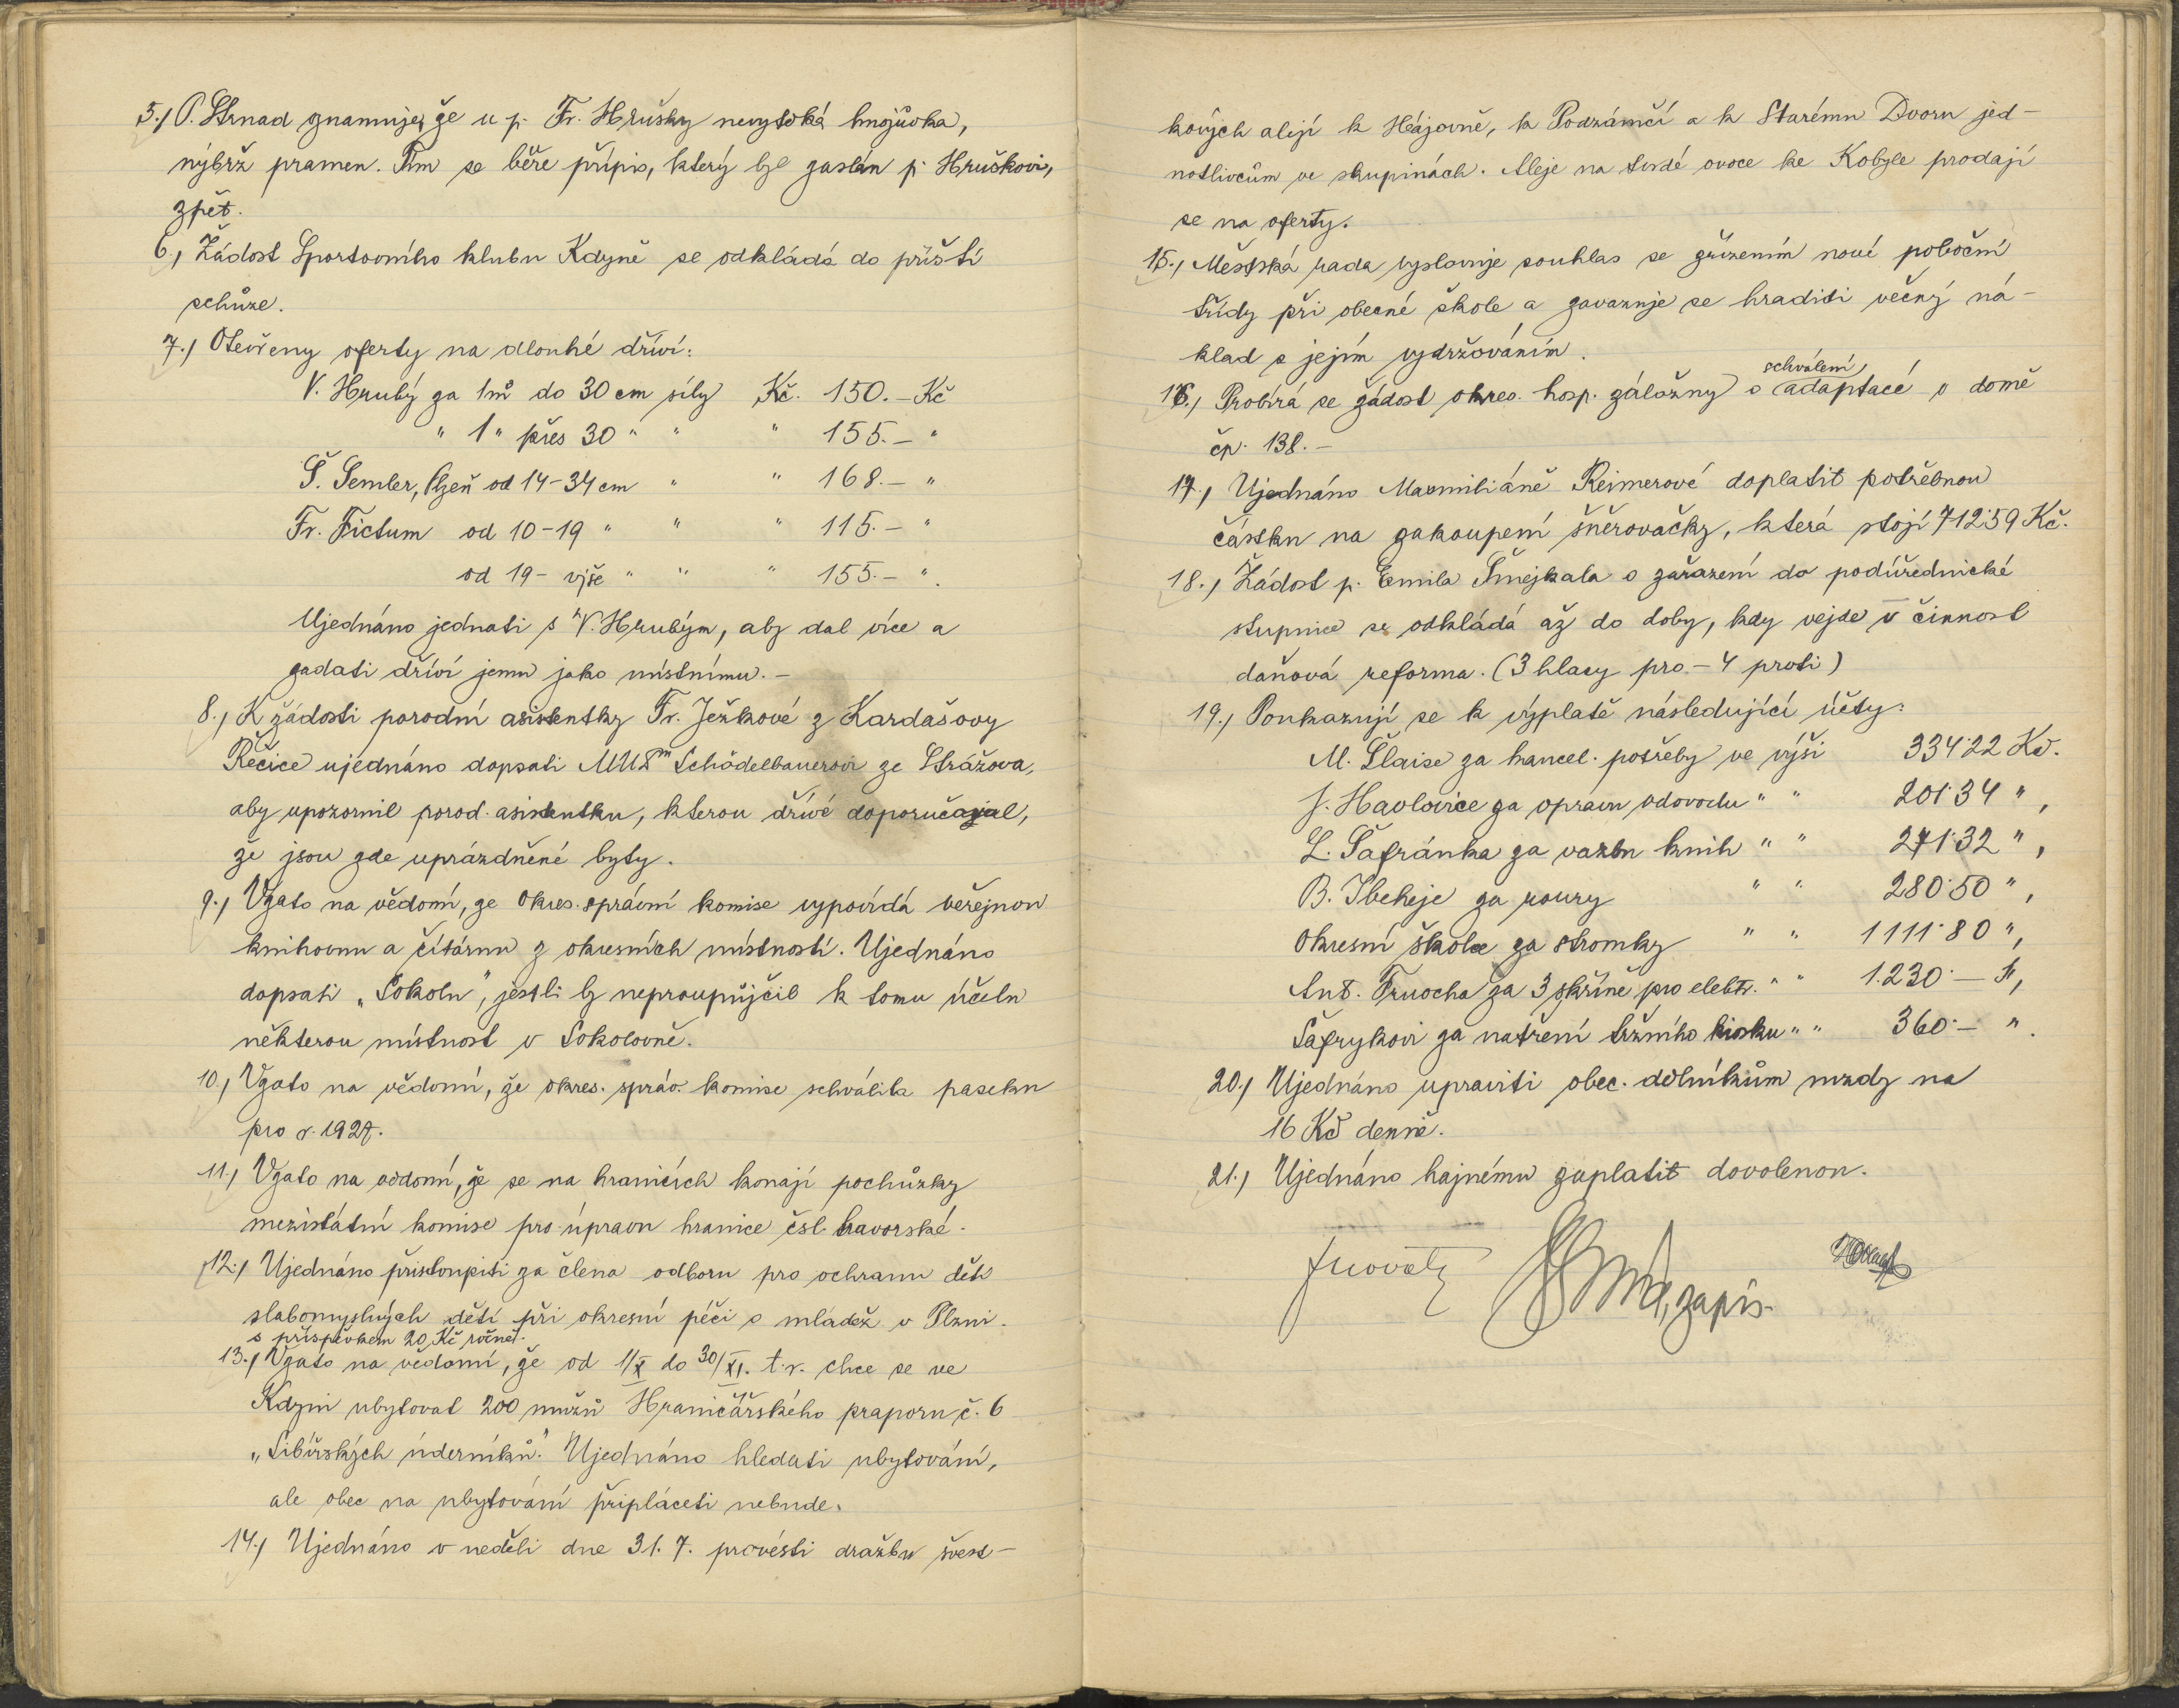 5./ P. Strnad oznamuje, že u p. Fr. Hrušky nevytéká hnojůvka,
nýbrž pramen. Tím se béře přípis, který byl zaslán p. Hruškovi,
zpět.
6./ Žádost Sportovního klubu Kdyně se odkládá do příští
schůze.
7./ Otevřeny oferty na dlouhé dříví:
V. Hrubý za 1 m³ do 30 cm síly Kč. 150.- Kč
" 1 " přes 30 " " " 155.- "
Š. Semler, Plzeň od 14-34 cm " " 168.- "
Fr. Fictum od 10-19 " " " 115.- "
od 19- výše " " " 155.- ".
Ujednáno jednati s V. Hrubým, aby dal více a
zadati dříví jemu jako místnímu.-
8./ K žádosti porodní asistentky Fr. Ježkové z Kardašovy
Řečice ujednáno dopsati MUDrm Schödelbauerovi ze Strážova,
aby upozornil porod. asistentku, kterou dříve doporučoval,
že jsou zde uprázdněné byty.
9./ Vzato na vědomí, že okres. správní komise vypovídá veřejnou
knihovnu a čítárnu z okresních místností. Ujednáno
dopsati „Sokolu", jestli by nepropůjčil k tomu účelu
některou místnost v Sokolovně.
10./ Vzato na vědomí, že okres. správ. komise schválila paseku
pro r. 1927.
11./ Vzato na vědomí, že se na hranicích konají pochůzky
mezistátní komise pro úpravu hranice čsl. bavorské.
12./ Ujednáno přistoupiti za člena odboru pro ochranu dětí
slabomyslných dětí při okresní péči o mládež v Plzni.
s příspěvkem 20 Kč ročně.
13./ Vzato na vědomí, že od 1/X do 30/XI. t. r. chce se ve
Kdyni ubytovat 200 mužů Hraničářského praporu č. 6
„Sibiřských úderníků." Ujednáno hledati ubytování,
ale obec na ubytování připláceti nebude.
14./ Ujednáno v neděli dne 31. 7. provésti dražbu švest-
kových alejí k Hájovně, k Podzámčí a k Starému Dvoru jed-
notlivcům ve skupinách. Aleje na tvrdé ovoce ke Kobyle prodají
se na oferty.
15./ Městská rada vyslovuje souhlas se zřízením nové poboční
třídy při obecné škole a zavazuje se hraditi věcný ná-
klad s jejím vydržováním.
schválení
16./ Probírá se žádost okres. hosp. záložny o adaptace v domě
čp. 138.-
17./ Ujednáno Maxmiliáně Reimerové doplatit potřebnou
částku na zakoupení šněrovačky, která stojí 712.59 Kč.
18./ Žádost p. Emila Šmejkala o zařazení do podúřednické
stupnice se odkládá až do doby, kdy vejde v činnost
daňová reforma. (3 hlasy pro - 4 proti)
19./ Poukazují se k výplatě následující účty:
M. Šlaise za kancel. potřeby ve výši 334.22 Kč.
J. Havlovice za opravu odvodu " " 201.34 ",
L. Šafránka za vazbu knih " " 271.32 ",
za roury " " 280.50 ",
Okresní školce za stromky " " 1111.80 ",
Ant. za 3 skříně pro elektr. " " 1.230.- ",
Šafrykovi za natření tržního kiosku " " 360.- ".
20./ Ujednáno upraviti obec. dělníkům mzdy na
16 Kč denně.
21./ Ujednáno hajnému zaplatit dovolenou.
zapis.